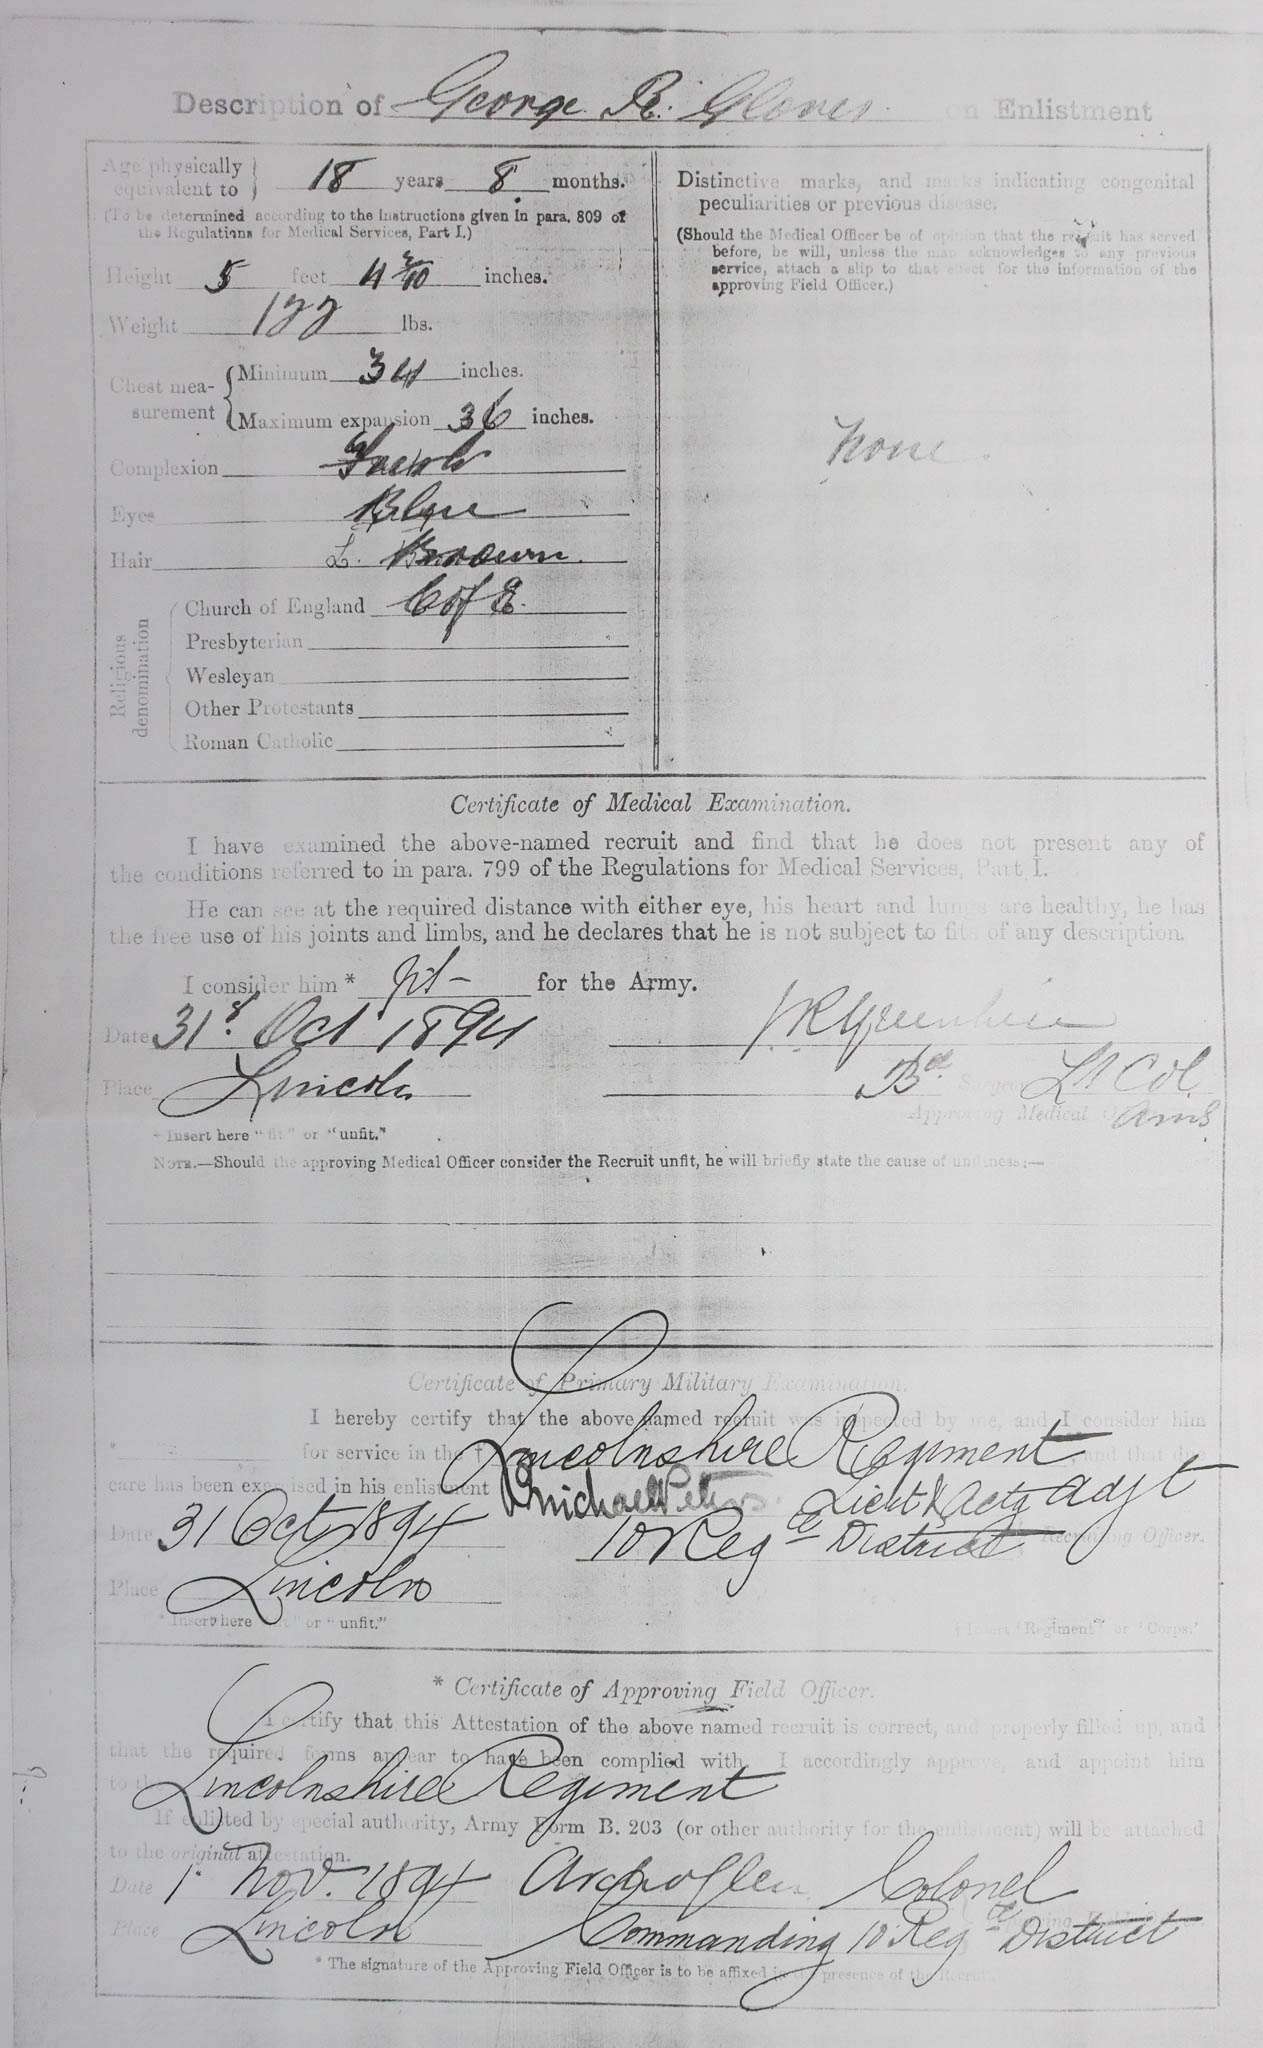 Description of George R. Glover on Enlistment
Age physically equivalent to 18 years 8 months.
(To be determined according to the instructions given in para. 809 of
the Regulations for Medical Services, Part I.)
Height 5 feet 4 2/10 inches.
Weight 122 lbs.
Chest mea-surement
Minimum 34 inches.
Maximum expansion 36 inches.
Complexion Fresh
Eyes Blue
Hair L. Brown.
Religious denomination
Church of England C of E.
Presbyterian
Wesleyan
Other Protestants
Roman Catholic
Distinctive marks, and marks indicating congenital
peculiarities or previous disease.
(Should the Medical Officer be of opinion that the recruit has served
before, he will, unless the man acknowledges to any previous
service, attach a slip to that effect for the information of the
approving Field Officer.)
None.
Certificate of Medical Examination.
I have examined the above-named recruit and find that he does not present any of
the conditions referred to in para. 799 of the Regulations for Medical Services, Part I.
He can see at the required distance with either eye, his heart and lungs are healthy, he has
the free use of his joints and limbs, and he declares that he is not subject to fits of any description.
I consider him * fit for the Army.
Date 31st Oct 1894
Place Lincoln
Bde Surgeon Lt Col.
Approving Medical Officer AMS
* Insert here "fit" or "unfit."
NOTE.—Should the approving Medical Officer consider the Recruit unfit, he will briefly state the cause of unfitness:—
Certificate of Primary Military Examination.
I hereby certify that the above named recruit was inspected by me, and I consider him
* for service in the † Lincolnshire Regiment and that due
care has been exercised in his enlistment
Lieut & Actg Adjt
Date 31 Oct 1894 10 Regtl District Recruiting Officer.
Place Lincoln
* Insert here "fit" or "unfit." † Insert 'Regiment' or 'Corps.'
* Certificate of Approving Field Officer.
I certify that this Attestation of the above named recruit is correct, and properly filled up, and
that the required forms appear to have been complied with. I accordingly approve, and appoint him
to the Lincolnshire Regiment
If enlisted by special authority, Army Form B. 203 (or other authority for the enlistment) will be attached
to the original attestation.
Date 1. Nov. 1894 Colonel
Place Lincoln Commanding 10 Regtl District
* The signature of the Approving Field Officer is to be affixed in the presence of the Recruit.